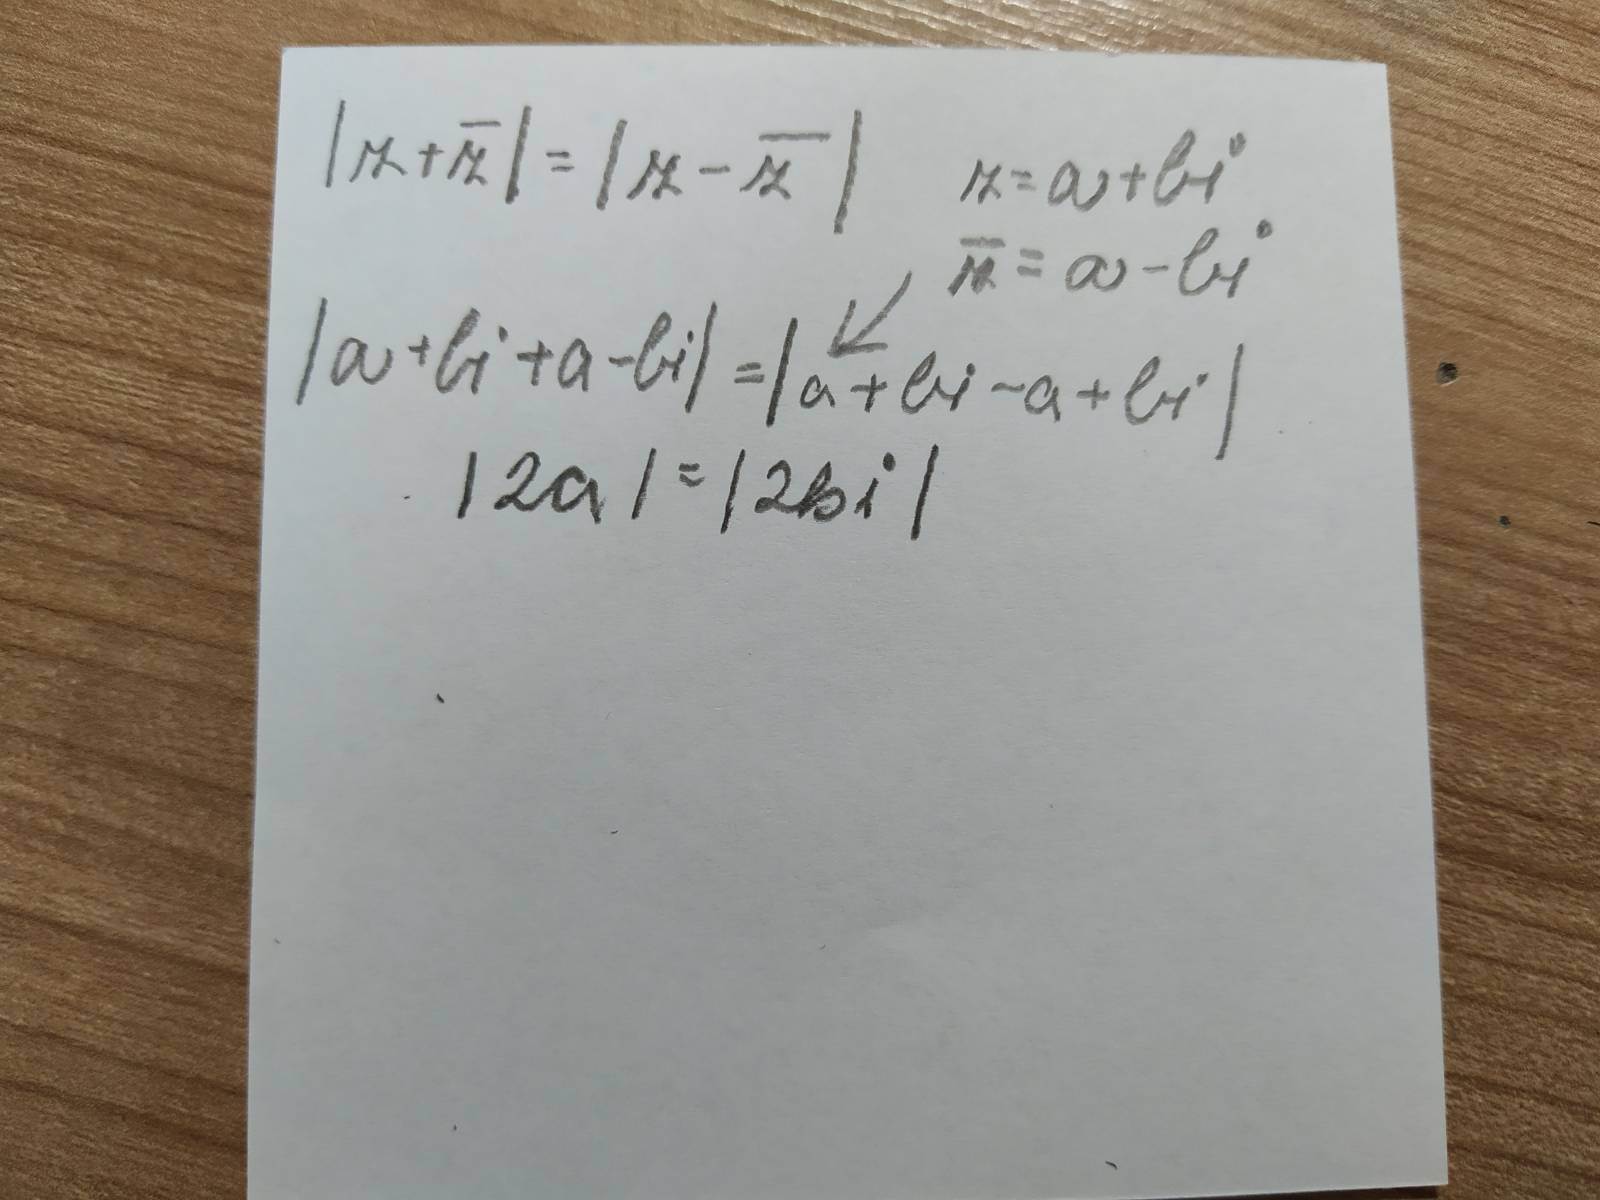 |z+z̅|=|z-z̅| z=a+bi
z̅=a-bi
|a+bi+a-bi|=|a+bi-a+bi|
|2a|=|2bi|